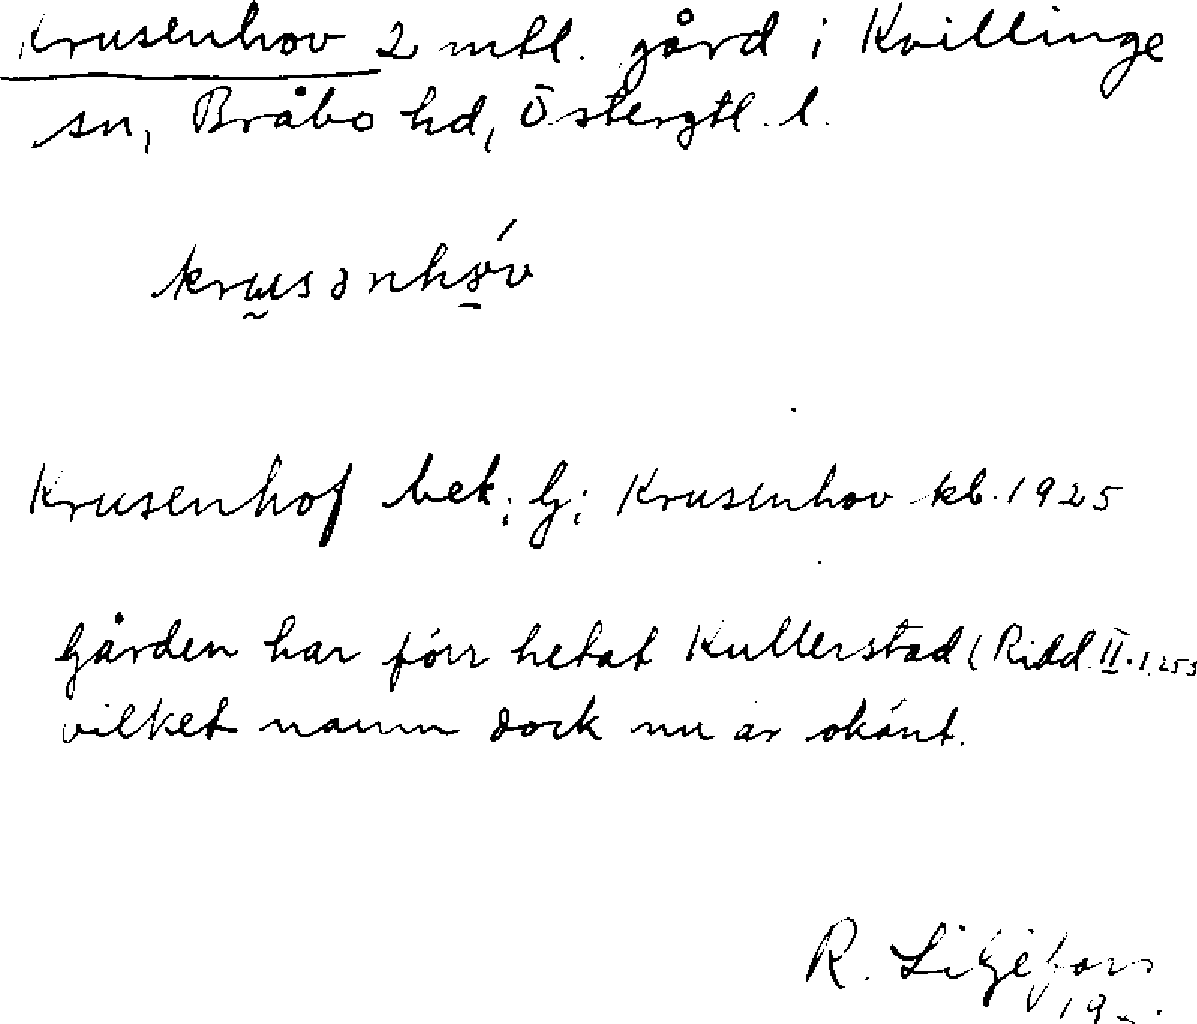 Krusenhov 2 mtl. gård i Kvillinge
sn, Bråbo hd, Östergtl. l.
krusənhóv
Krusenhof bek; Gj; Krusenhov kb. 1925
Gården har förr hetat Kullerstad (Ridd. II. 1.253
vilket namn dock nu är okänt.
R. Liljefors
19